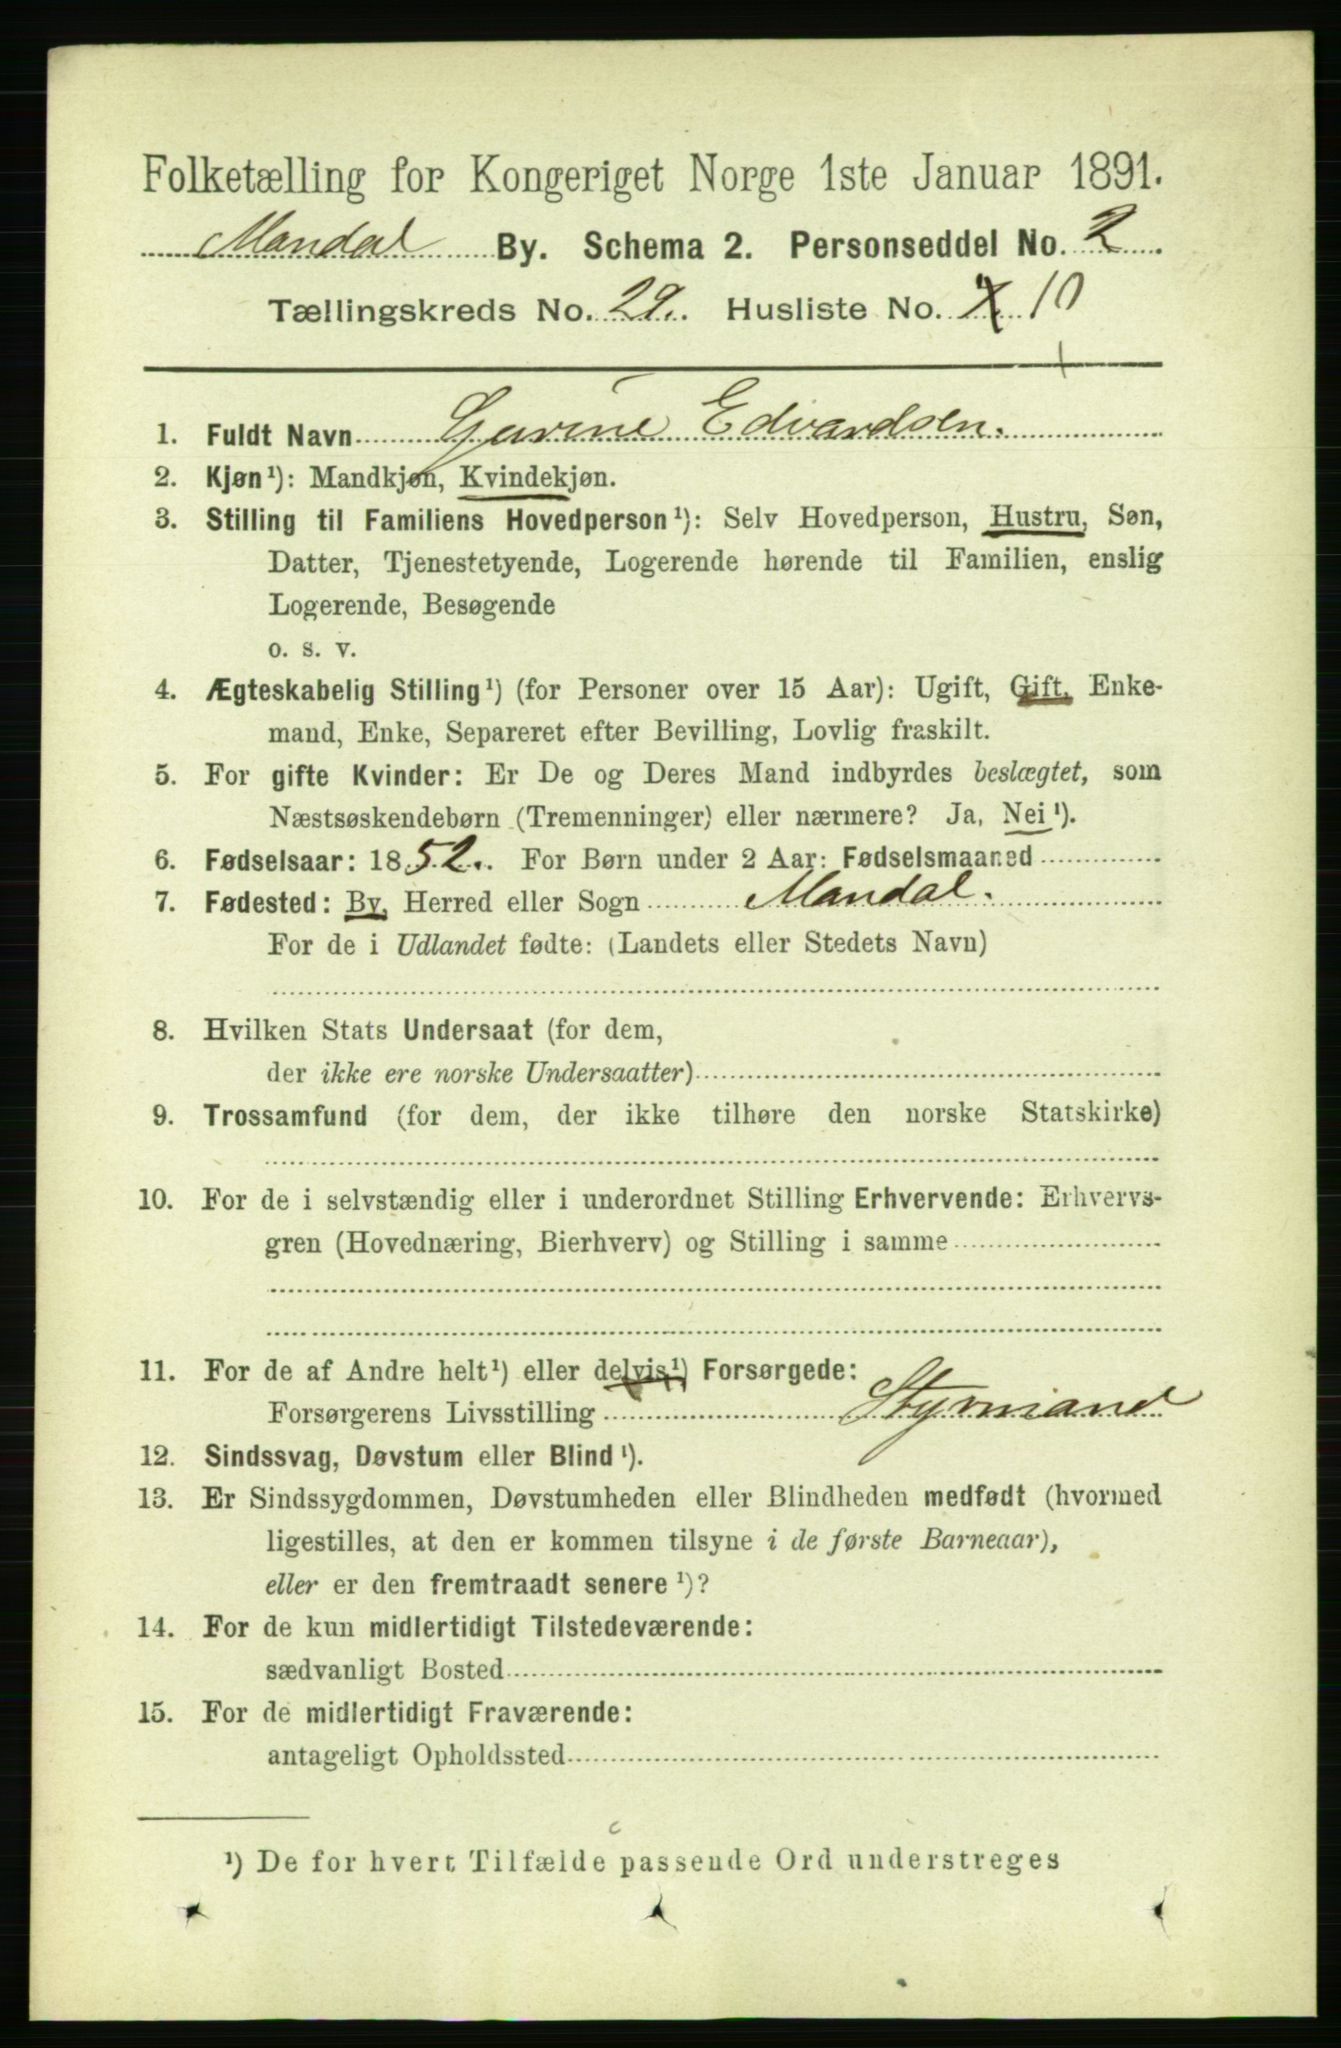 Folketælling for Kongeriget Norge 1ste Januar 1891.
Mandal By. Schema 2. Personseddel No. 2.
Tællingskreds No. 29. Husliste No. 10
1. Fuldt Navn Edvardsen.
2. Kjøn¹): Mandkjøn, Kvindekjøn.
3. Stilling til Familiens Hovedperson¹): Selv Hovedperson, Hustru, Søn,
Datter, Tjenestetyende, Logerende hørende til Familien, enslig
Logerende, Besøgende
o. s. v.
4. Ægteskabelig Stilling¹) (for Personer over 15 Aar): Ugift, Gift, Enke-
mand, Enke, Separeret efter Bevilling, Lovlig fraskilt.
5. For gifte Kvinder: Er De og Deres Mand indbyrdes beslægtet, som
Næstsøskendebørn (Tremenninger) eller nærmere? Ja, Nei¹).
6. Fødselsaar: 1852. For Børn under 2 Aar: Fødselsmaaned
7. Fødested: By, Herred eller Sogn Mandal.
For de i Udlandet fødte: (Landets eller Stedets Navn)
8. Hvilken Stats Undersaat (for dem,
der ikke ere norske Undersaatter)
9. Trossamfund (for dem, der ikke tilhøre den norske Statskirke)
10. For de i selvstændig eller i underordnet Stilling Erhvervende: Erhvervs-
gren (Hovednæring, Bierhverv) og Stilling i samme
11. For de af Andre helt¹) eller delvis¹) Forsørgede:
Forsørgerens Livsstilling Styrmand
12. Sindssvag, Døvstum eller Blind¹).
13. Er Sindssygdommen, Døvstumheden eller Blindheden medfødt (hvormed
ligestilles, at den er kommen tilsyne i de første Barneaar),
eller er den fremtraadt senere¹)?
14. For de kun midlertidigt Tilstedeværende:
sædvanligt Bosted
15. For de midlertidigt Fraværende:
antageligt Opholdssted
¹) De for hvert Tilfælde passende Ord understreges